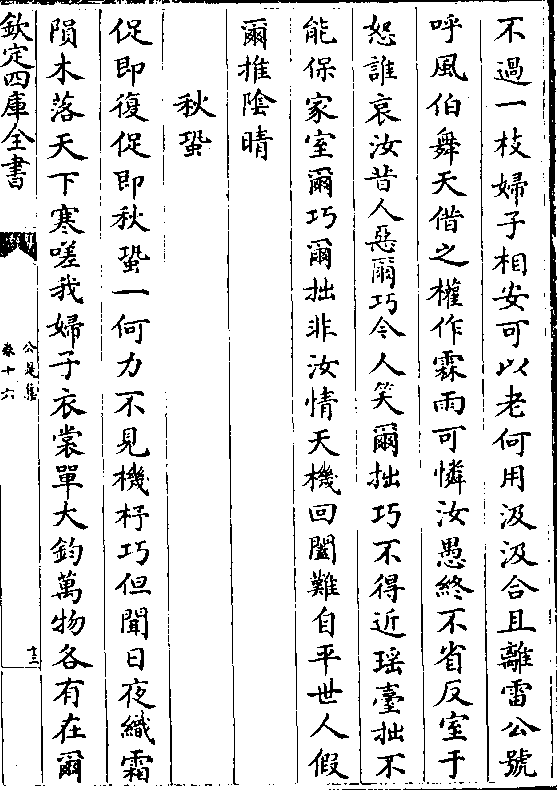 不過一枝婦子相安可以老何用汲汲合且離雷公號
呼風伯舞天借之權作霖雨可憐汝愚終不省反室于
怒誰哀汝昔人惡爾巧今人笑爾拙巧不得近瑶臺拙不
能保家室爾巧爾拙非汝情天機回闔難自平世人假
爾推陰晴
秋蛩
促即復促即秋蛩一何力不見機杼巧但聞日夜織霜
隕木落天下寒嗟我婦子衣裳單大鈞萬物各有在爾
欽定四庫全書
公是集
卷十六
十三